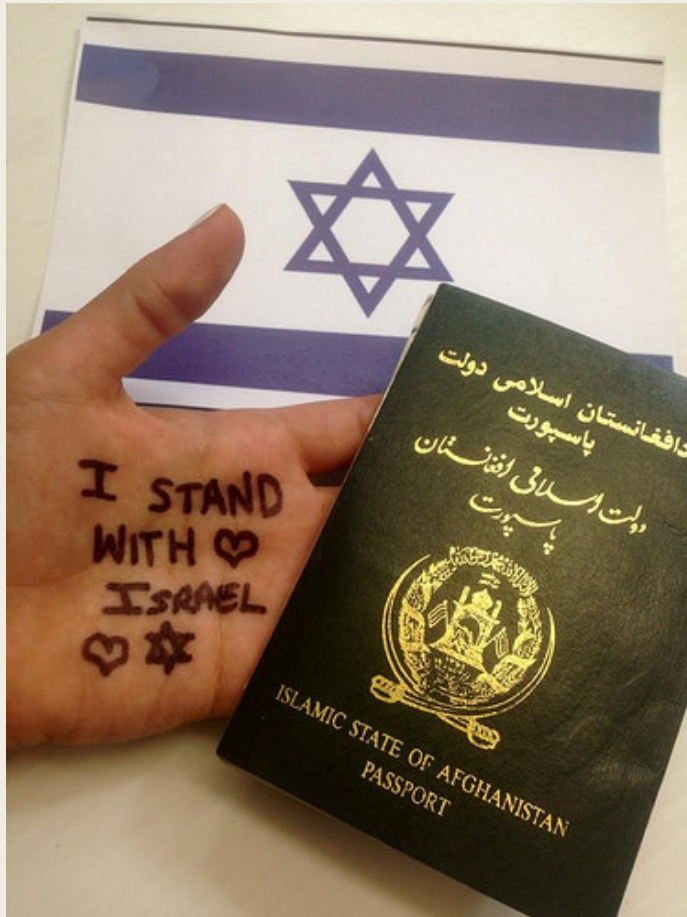 I STAND
WITH
ISRAEL
دافغانستان اسلامی دولت
پاسپورت
دولت اسلامی افغانستان
پاسپورت
ISLAMIC STATE OF AFGHANISTAN
PASSPORT